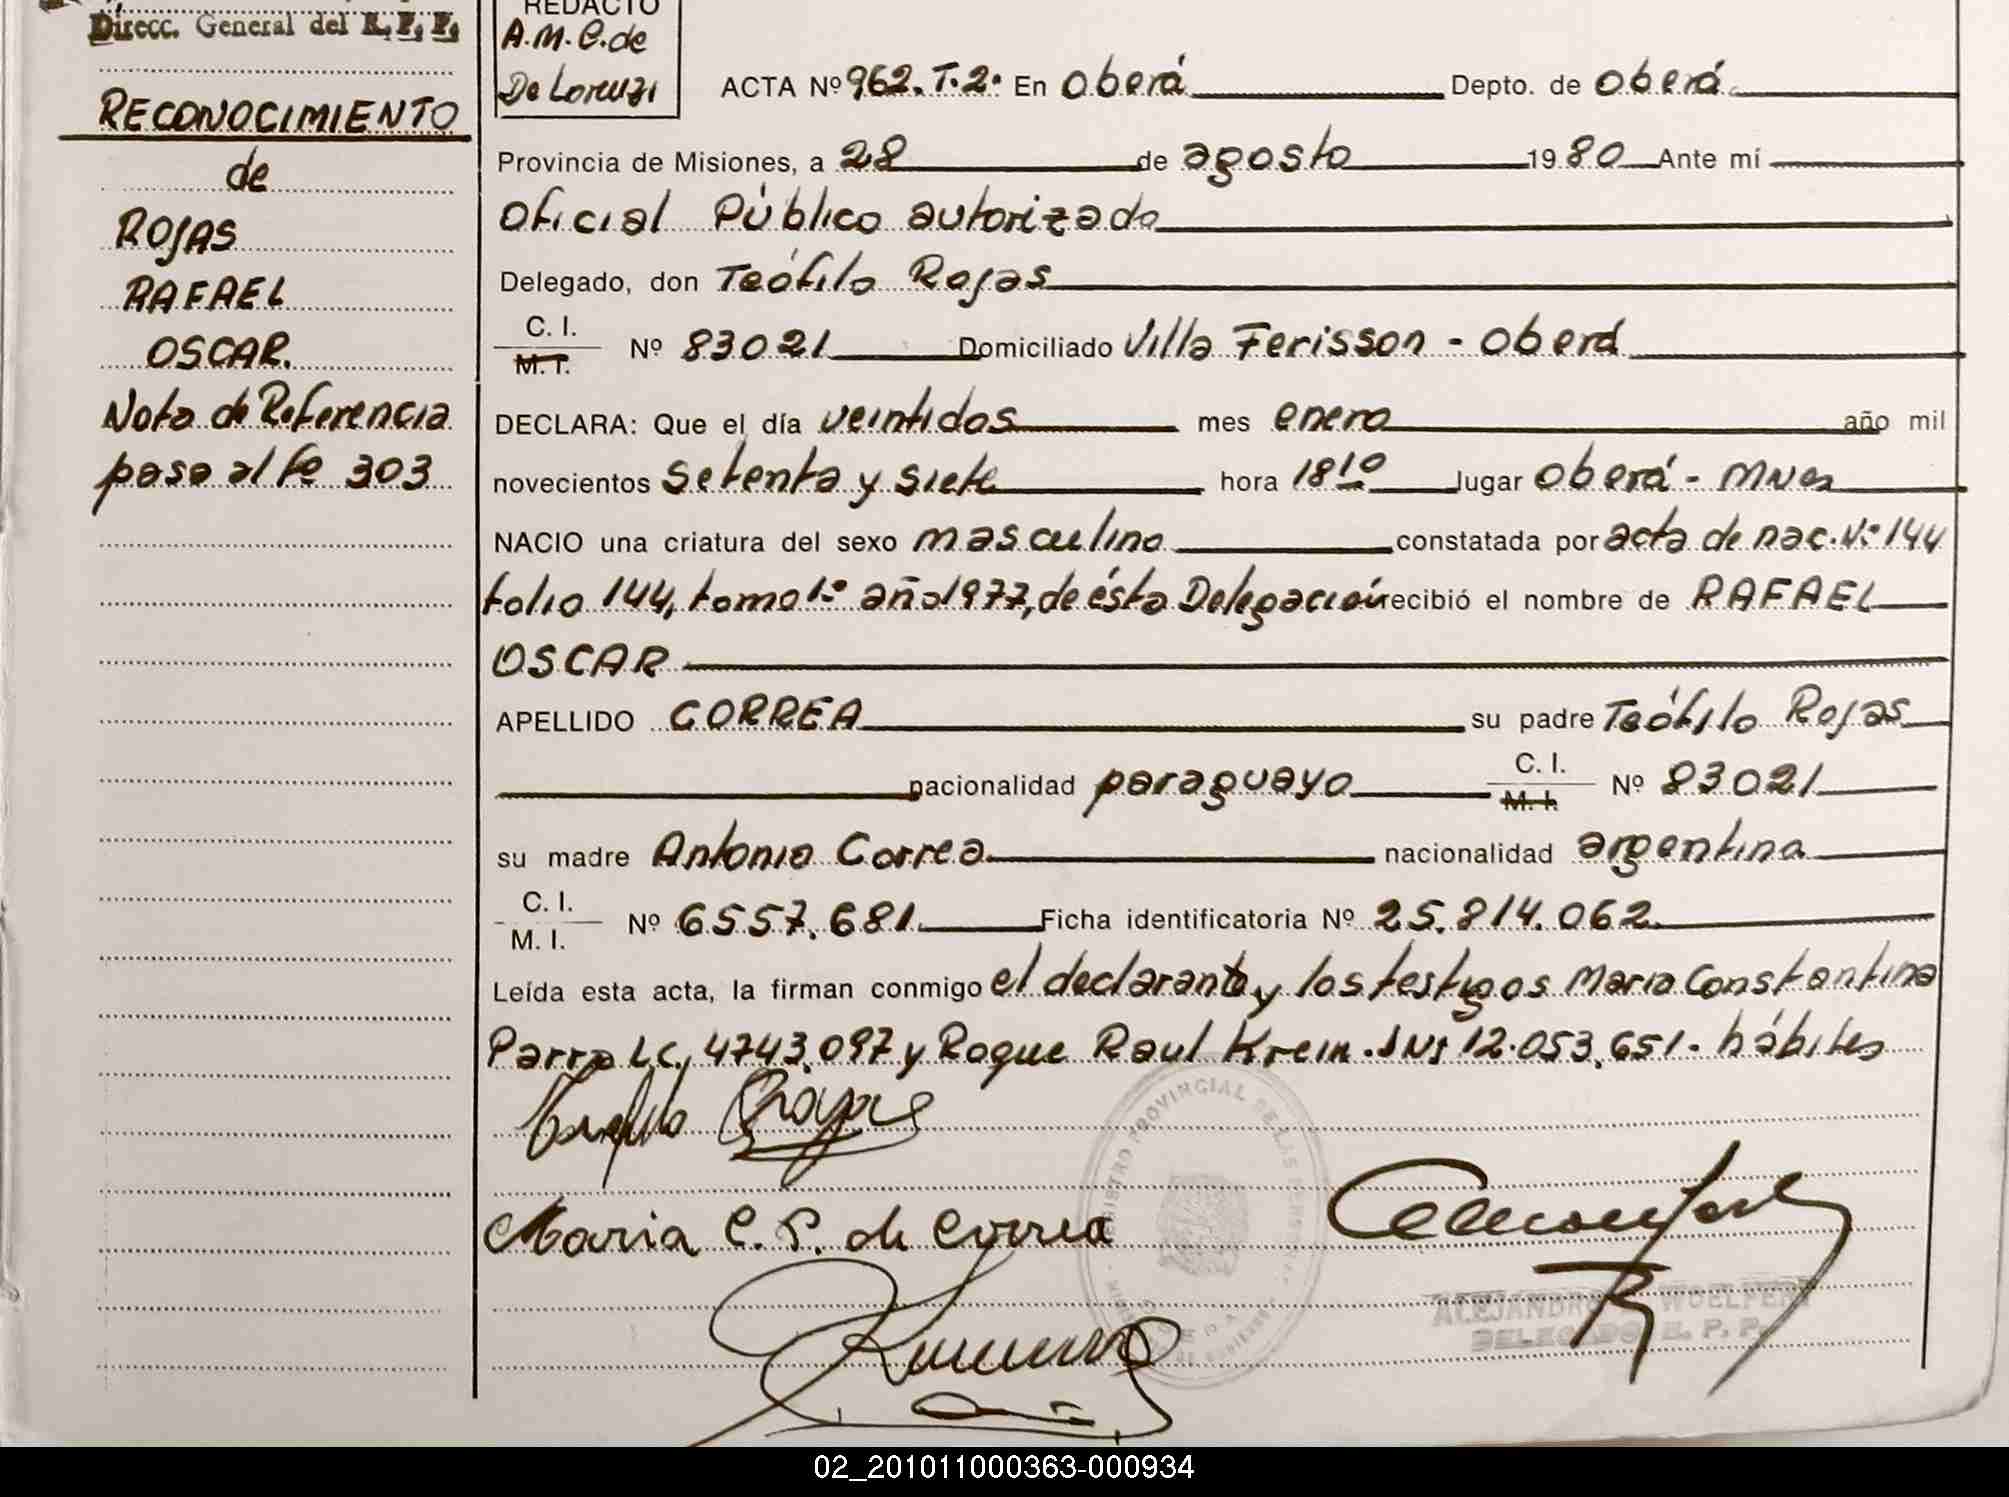 Direcc. General del R. P. P.
RECONOCIMIENTO
de
ROJAS
RAFAEL
OSCAR.
Nota de Referencia
pasa al fº 303
REDACTO
A.M.C. de
De Lorenzi
ACTA Nº 962. T. 2º En Oberá Depto. de Oberá
Provincia de Misiones, a 28 de agosto 1980 Ante mí
Oficial Público autorizado
Delegado, don Teófilo Rojas
C. I.
M. I. Nº 83021 Domiciliado Villa Ferisson - Oberá
DECLARA: Que el día veintidos mes enero año mil
novecientos setenta y siete hora 18 10 lugar Oberá - Mnes
NACIO una criatura del sexo masculino constatada por acta de nac. Nº 144
folio 144, tomo 1º año 1977, de ésta Delegación recibió el nombre de RAFAEL
OSCAR
APELLIDO CORREA su padre Teófilo Rojas
nacionalidad paraguayo C. I.
M. I. Nº 83021
su madre Antonia Correa nacionalidad argentina
C. I.
M. I. Nº 6557.681 Ficha identificatoria Nº 25.814.062
Leída esta acta, la firman conmigo el declarante y los testigos Maria Constantina
Parra LC. 4743.097 y Roque Raul Krein. DNI 12.053.651. hábiles
Maria C. P. de Correa
REGISTRO PROVINCIAL DE LAS PERSONAS
ALEJANDRO WOELFERT
DELEGADO R. P. P.
02_201011000363-000934